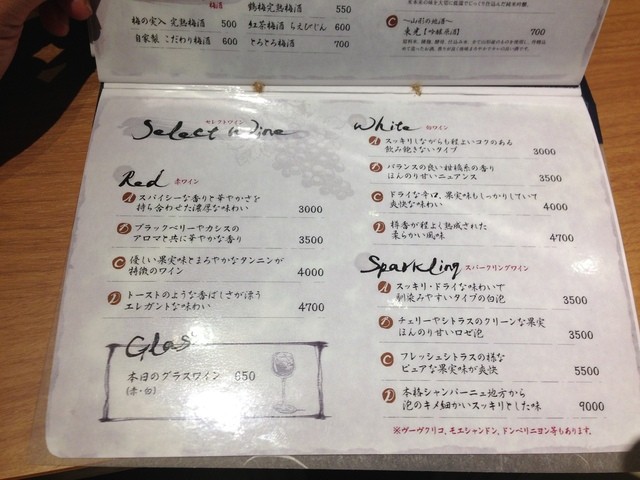 梅酒
鶴梅完熟梅酒 550
梅の実入 完熟梅酒 500
紅茶梅酒 らえぴじん 600
自家製 こだわり梅酒 600
とろとろ梅酒 700
C 〜山形の地酒〜
東光【吟醸原酒】 700
Select Wine
セレクトワイン
Red 赤ワイン
A スパイシーな香りと華やかさを
持ち合わせた濃厚な味わい 3000
B ブラックベリーやカシスの
アロマと共に華やかな香り 3500
C 優しい果実味とまろやかなタンニンが
特徴のワイン 4000
D トーストのような香ばしさが漂う
エレガントな味わい 4700
Glass
本日のグラスワイン 650
(赤・白)
White 白ワイン
A スッキリしながらも程よいコクのある
飲み飽きないタイプ 3000
B バランスの良い柑橘系の香り
ほんのり甘いニュアンス 3500
C ドライな辛口、果実味もしっかりしていて
爽快な味わい 4000
D 樽香が程よく熟成された
柔らかい風味 4700
Sparkling スパークリングワイン
A スッキリ・ドライな味わいで
馴染みやすいタイプの白泡 3500
B チェリーやシトラスのクリーンな果実
ほんのり甘いロゼ泡 3500
C フレッシュシトラスの様な
ピュアな果実味が爽快 5500
D 本格シャンパーニュ地方から
泡のキメ細かいスッキリとした味 9000
※ヴーヴクリコ、モエシャンドン、ドンペリニヨン等もあります。